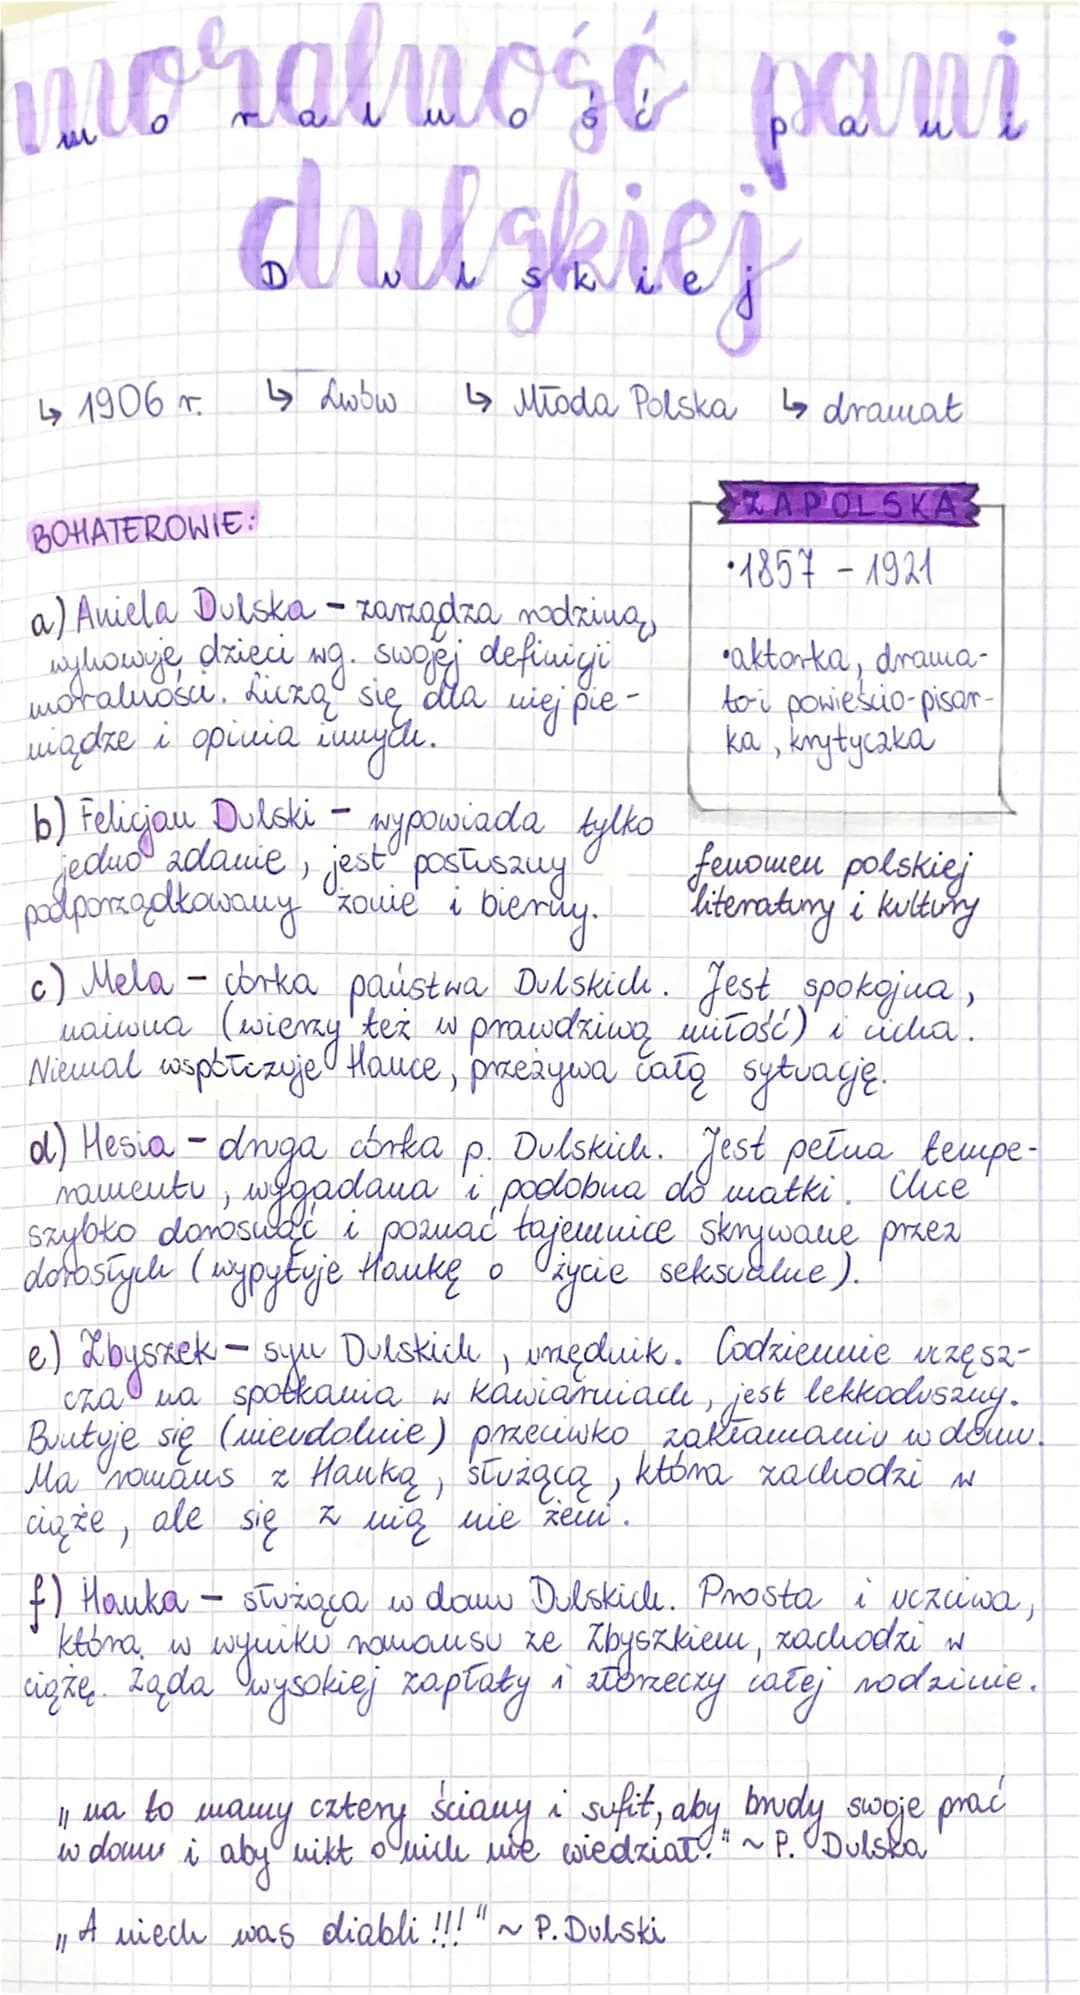 moralność pani
m o r a l n o ś ć p a n i
dulskiej
D u l s k i e j
↳ 1906 r. ↳ Lwów ↳ Młoda Polska ↳ dramat
BOHATEROWIE:
a) Aniela Dulska - zarządza rodziną,
wyhowuje dzieci wg. swojej definicji
moralności. Liczą się dla niej pie-
niądze i opinia innych.
ZAPOLSKA
•1857 - 1921
•aktorka, drama-
to-i powieścio-pisar-
ka, krytyczka
b) Felicjan Dulski - wypowiada tylko
jedno zdanie, jest posłuszny
podporządkowany żonie i bierny.
fenomen polskiej
literatury i kultury
c) Mela - córka państwa Dulskich. Jest spokojna,
naiwna (wierzy też w prawdziwą miłość) i cicha.
Niemal współczuje Hance, przeżywa całą sytuację.
d) Hesia - druga córka p. Dulskich. Jest pełna tempe-
ramentu, wygadana i podobna do matki. Chce
szybko dorosnąć i poznać tajemnice skrywane przez
dorosłych (wypytuje Hankę o życie seksualne).
e) Zbyszek - syn Dulskich, urzędnik. Codziennie uczęsz-
cza na spotkania w kawiarniach, jest lekkoduszny.
Buntuje się (nieudolnie) przeciwko zakłamaniu w domu.
Ma romans z Hanką, służącą, która zachodzi w
ciąże, ale się z nią nie żeni.
f) Hanka - służąca w domu Dulskich. Prosta i uczciwa,
która, w wyniku romansu ze Zbyszkiem, zachodzi w
ciążę. Żąda wysokiej zapłaty i złorzeczy całej rodzinie.
„na to mamy cztery ściany i sufit, aby brudy swoje prać
w domu i aby nikt o nich nie wiedział." ~ P. Dulska
„A niech was diabli!!!" ~ P. Dulski